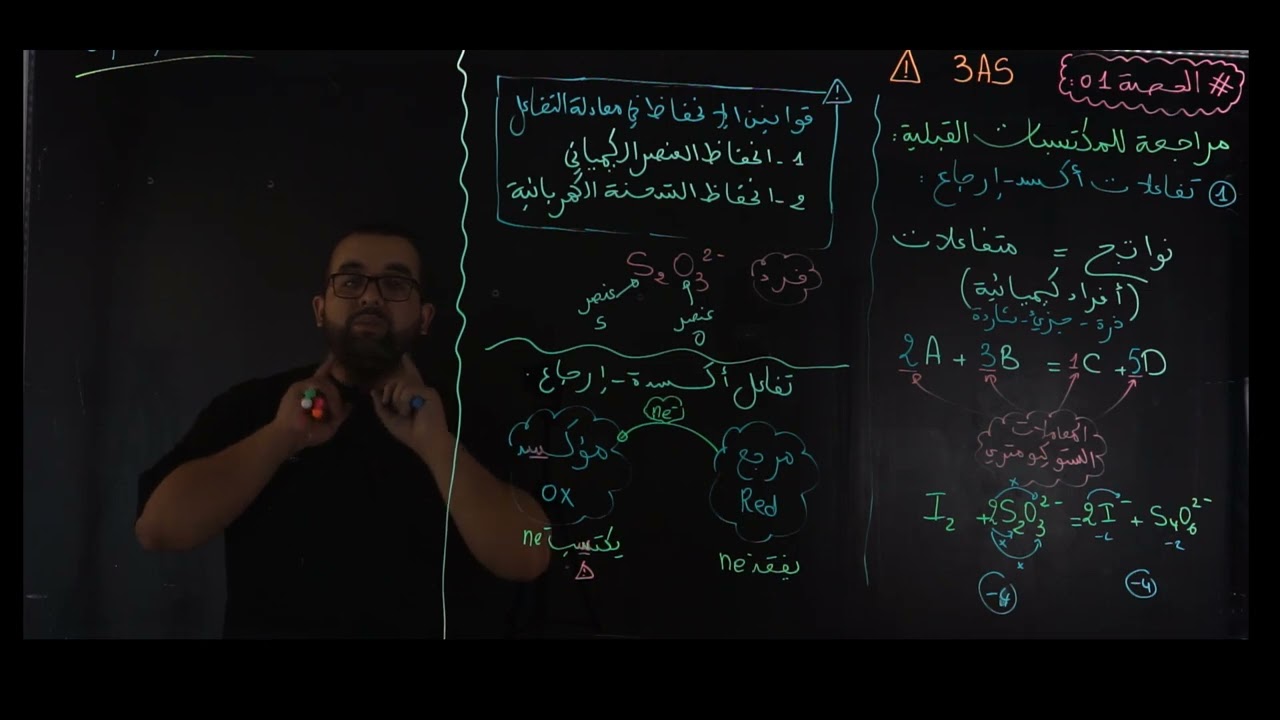 # الحصة 01:
⚠ 3AS
مراجعة للمكتسبات القبلية:
① تفاعلات أكسدـإرجاع:
متفاعلات = نواتج
(أفراد كيميائية)
ذرة - جزيء - شاردة
2A + 3B = 1C + 5D
المعاملات
الستوكيومتري
I₂ + 2S₂O₃²⁻ = 2I⁻ + S₄O₆²⁻
-2 -2
-4 -4
قوانين الإنحفاظ في معادلة التفاعل
1- انحفاظ العنصر الكيميائي
2- انحفاظ الشحنة الكهربائية
S₂O₃²⁻ فرد
عنصر S
عنصر O
تفاعل أكسدة - إرجاع:
ne⁻
مرجع
Red
يفقد ne⁻
مؤكسد
OX
يكتسب ne⁻